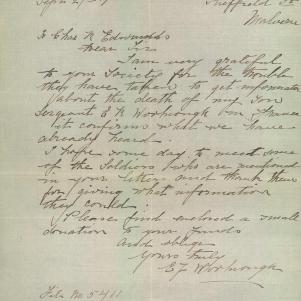 Sept 27-17 Sheffield St
Malvern
To Chas R Edmunds
Dear Sir
I am very grateful
to your Society for the trouble
they have taken to get information
about the death of my Son
Sergeant E R Worbough in France
it confirms what we have
already heard.
I hope some day to meet some
of the Soldiers who are
in your letter and thank them
for giving what information
they could.
Please find enclosed a small
donation to your funds
And oblige
Yours truly
E J Worbough
File No 5411